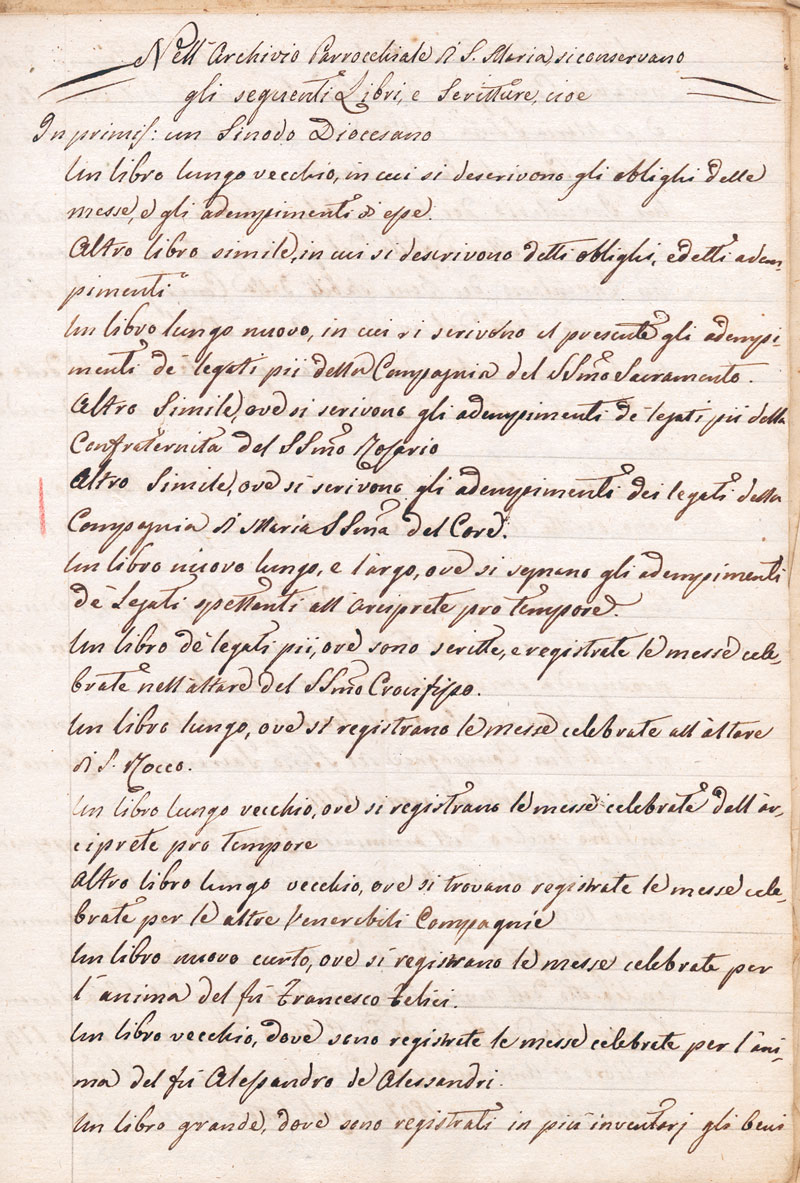 Nell'Archivio Parrocchiale di S. Maria, si conservano
gli seguenti Libri, e Scritture, cioe
In primis: un Sinodo Diocesano
Un libro lungo vecchio, in cui si descrivono gli oblighi delle
messe, e gli adempimenti di esse.
Altro libro simile, in cui si descrivono detti oblighi, e detti adem-
pimenti
Un libro lungo nuovo, in cui si scrivono al presente gli adempi-
menti de' legati pii della Compagnia del SSmo Sacramento.
Altro simile, ove si scrivono gli adempimenti de' legati pii della
Confraternita del SSmo Rosario
Altro simile, ove si scrivono gli adempimenti dei legati della
Compagnia di Maria SSma del Core.
Un libro nuovo lungo, e largo, ove si segnano gli adempimenti
de' Legati spettanti all'arciprete pro tempore.
Un libro de' legati pii, ove sono scritte, e registrate le messe cele-
brate nell'altare del SSmo Crocifisso.
Un libro lungo, ove si registrano le messe celebrate all'altare
di S. Rocco.
Un libro lungo vecchio, ove si registrano le messe celebrate dall'ar-
ciprete pro tempore
Altro libro lungo vecchio, ove si trovano registrate le messe cele-
brate per le altre Venerabili Compagnie
Un libro nuovo curto, ove si registrano le messe celebrate per
l'anima del fù Francesco Felici.
Un libro vecchio, dove sono registrate le messe celebrate per l'ani-
ma del fù Alessandro de Alessandri.
Un libro grande, dove sono registrati in più inventarj gli beni